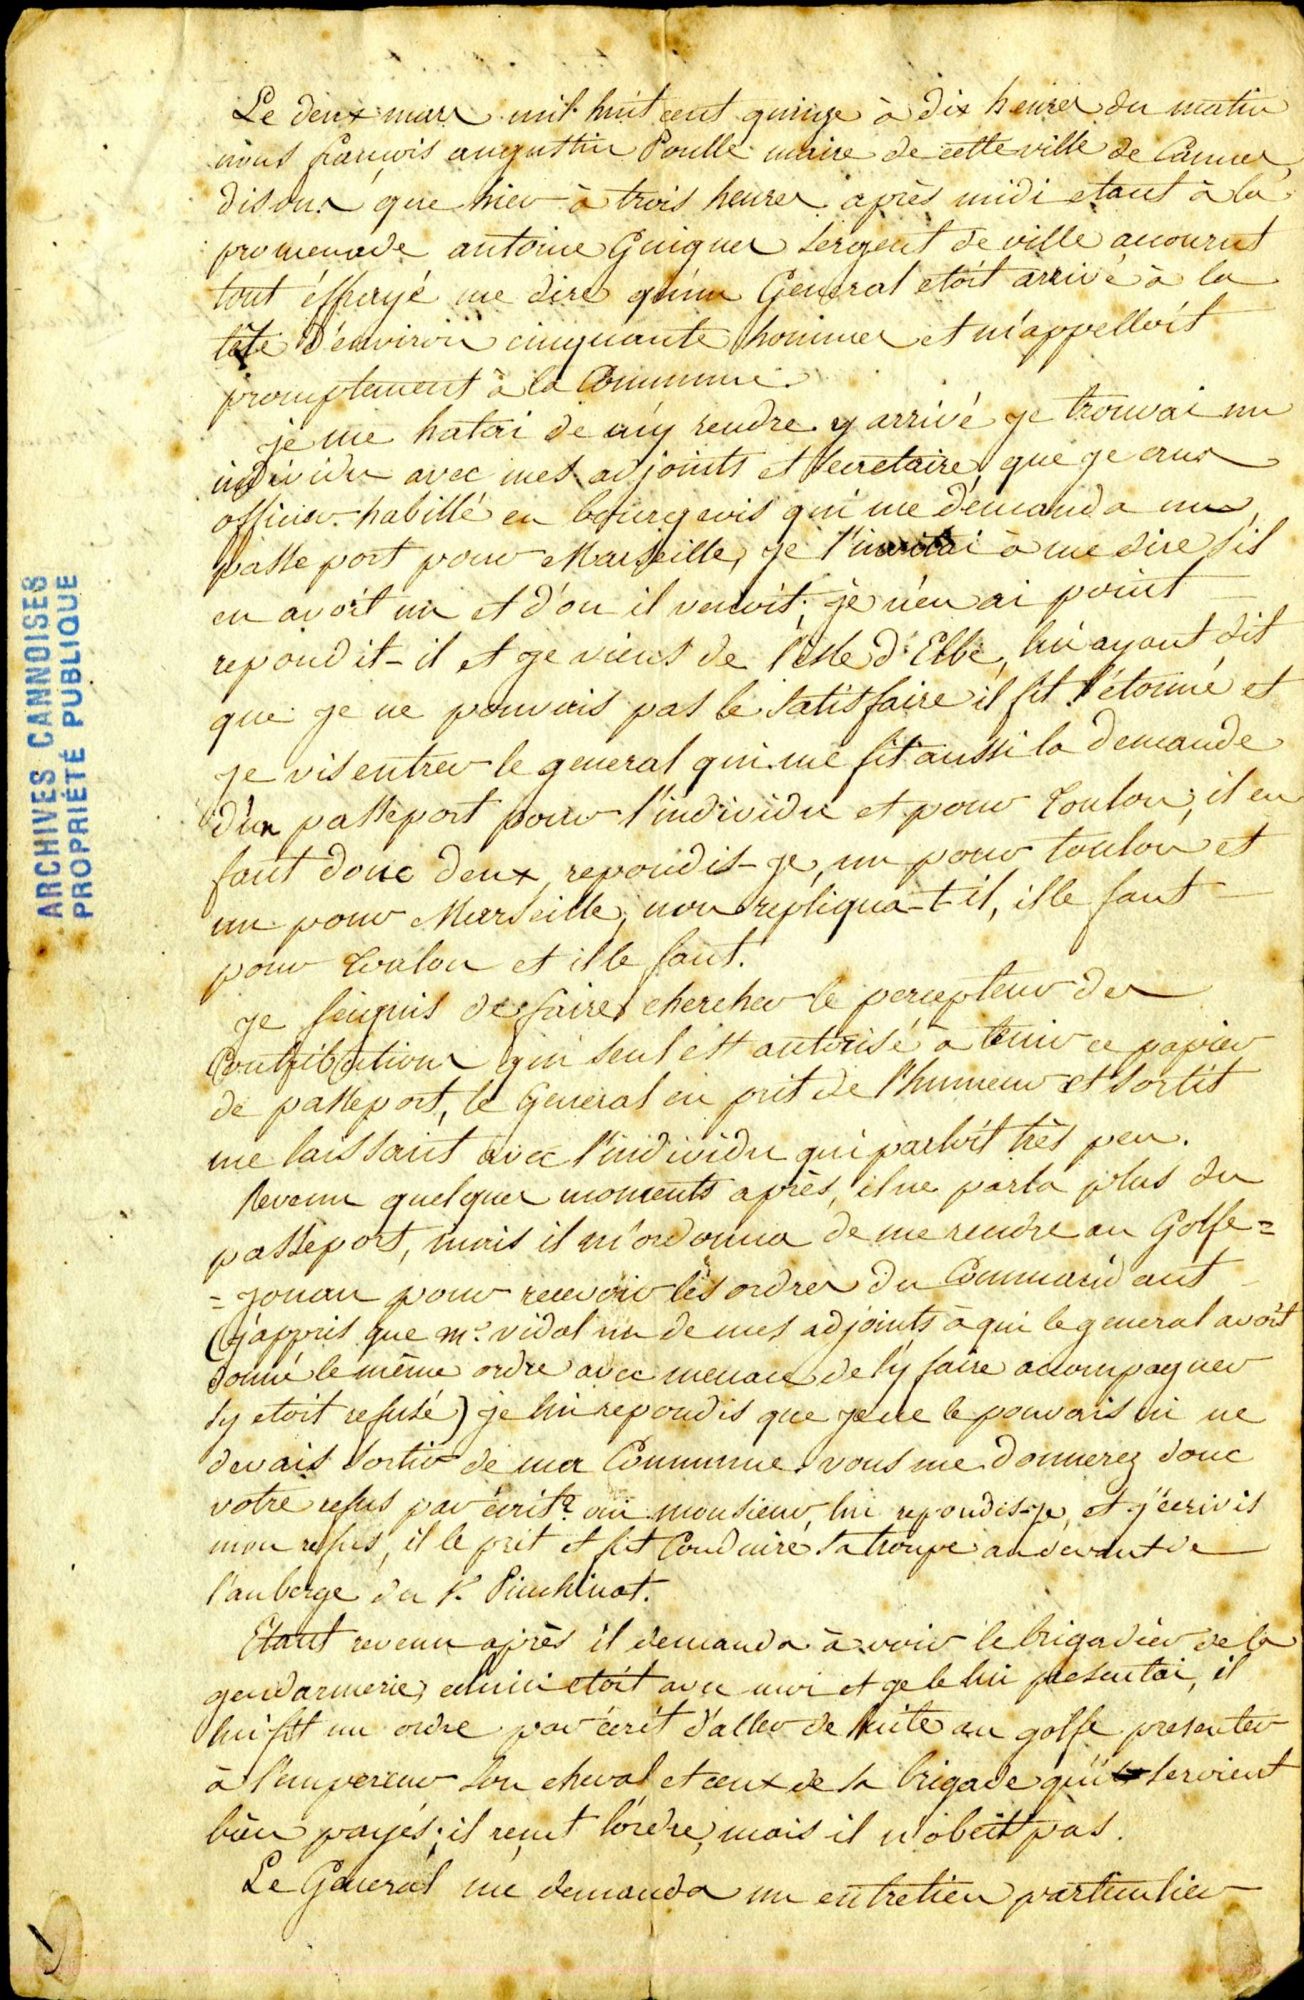 Le deux mars mil huit cent quinze à dix heures du matin
nous françois augustin Poulle maire de cette ville de Cannes
disons que hier à trois heures après midi etant à la
promenade antoine Guigues sergent de ville accourut
tout éffrayé me dire qu'un General etoit arrivé à la
tête d'environ cinquante hommes et m'appelloit
promptement à la Commune.
je me hatai de m'y rendre y arrivé je trouvai un
individu avec mes adjoints et secretaire que je crus
officier habillé en bourgeois qui me demanda un
passe port pour Marseille, je l'invitai à me dire s'il
en avoit un et d'ou il venoit; je n'en ai point
repondit-il et je viens de l'isle d'Elbe, lui ayant dit
que je ne pouvois pas le satisfaire il fit l'étonné et
je vis entrer le general qui me fit aussi la demande
d'un passeport pour l'individu et pour Toulon; il en
faut donc deux, repondis-je, un pour toulon et
un pour Marseille, non repliqua-t-il, il le faut
pour Toulon et il le faut.
je feignis de faire chercher le percepteur des
Contributions qui seul est autorisé à tenir ce papier
de passeport, le General en prit de l'humeur et sortit
me laissant avec l'individu qui parloit très peu.
Revenu quelques moments après, il ne parla plus du
passeport, mais il m'ordonna de me rendre au Golfe=
=jouan pour recevoir les ordres du Commandant
(j'appris que mr. vidal un de mes adjoints à qui le general avoit
donné le même ordre avec menace de l'y faire accompagner
s'y etoit refusé) je lui repondis que je ne le pouvois ni ne
devais sortir de ma Commune. vous me donnerez donc
votre refus par écrit? oui monsieur, lui repondis-je, et j'écrivis
mon refus, il le prit et fit Conduire sa troupe au devant de
l'auberge du Sr. Pinchinat.
Etant revenu après il demanda à voir le brigadier de la
gendarmerie, celui ci etoit avec moi et je le lui presentai, il
lui fit un ordre par écrit d'aller de suite au golfe presenter
à l'empereur son cheval et ceux de sa brigade qui seroient
bien payés; il reçut l'ordre, mais il n'obeit pas.
Le General me demanda un entretien particulier
ARCHIVES CANNOISES
PROPRIÉTÉ PUBLIQUE